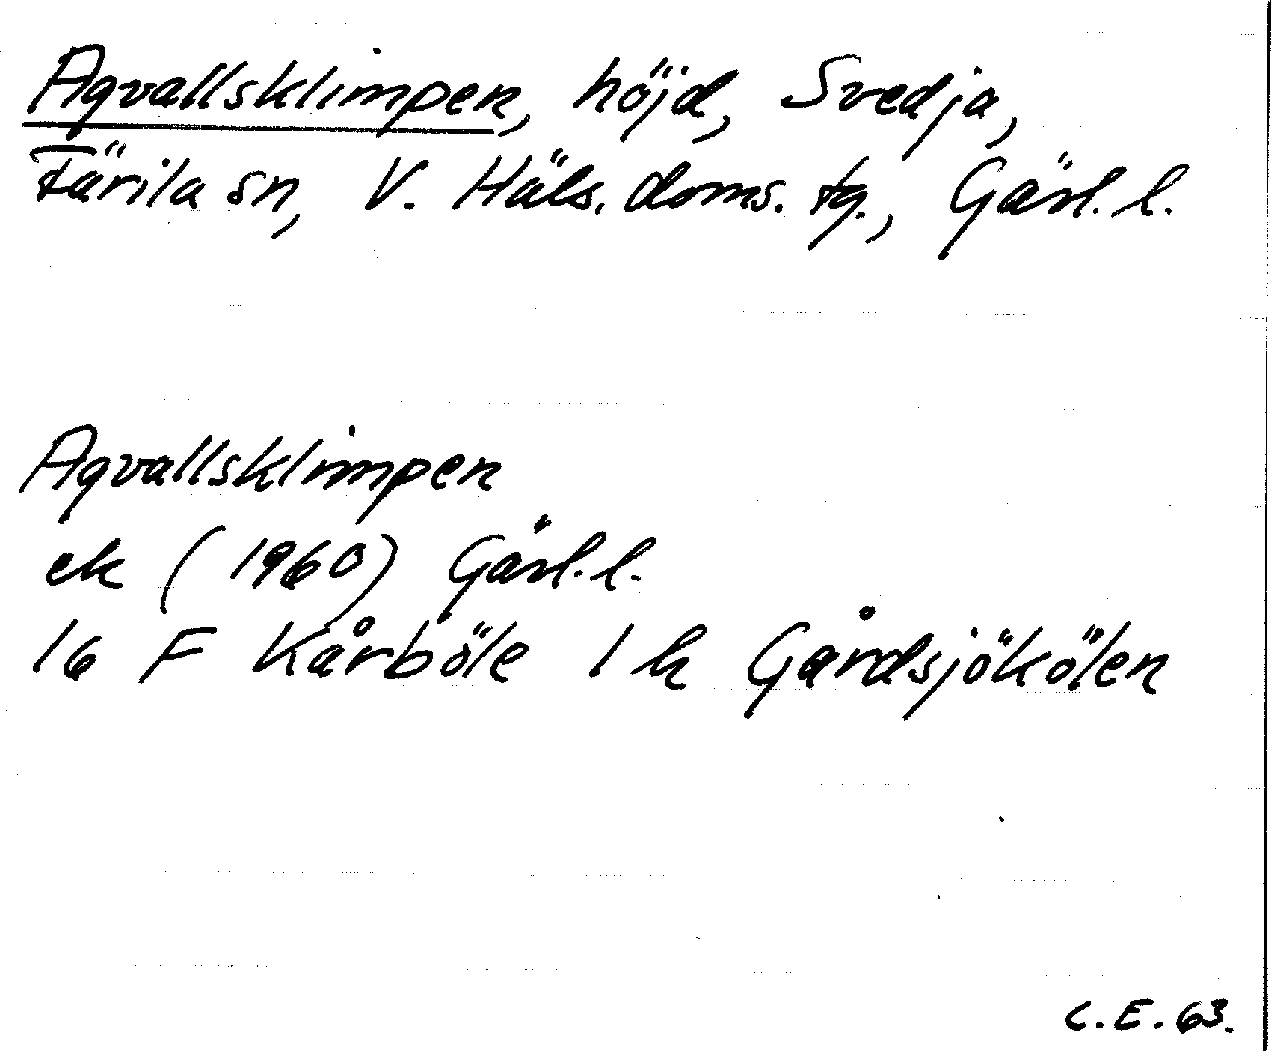 Agvallsklimpen, höjd, Svedja,
Färila sn, V. Häls. doms. tg., Gävl. l.
Agvallsklimpen
ek (1960) Gävl. l.
16 F Kårböle 1 h Gårdsjökölen
C.E. 63.